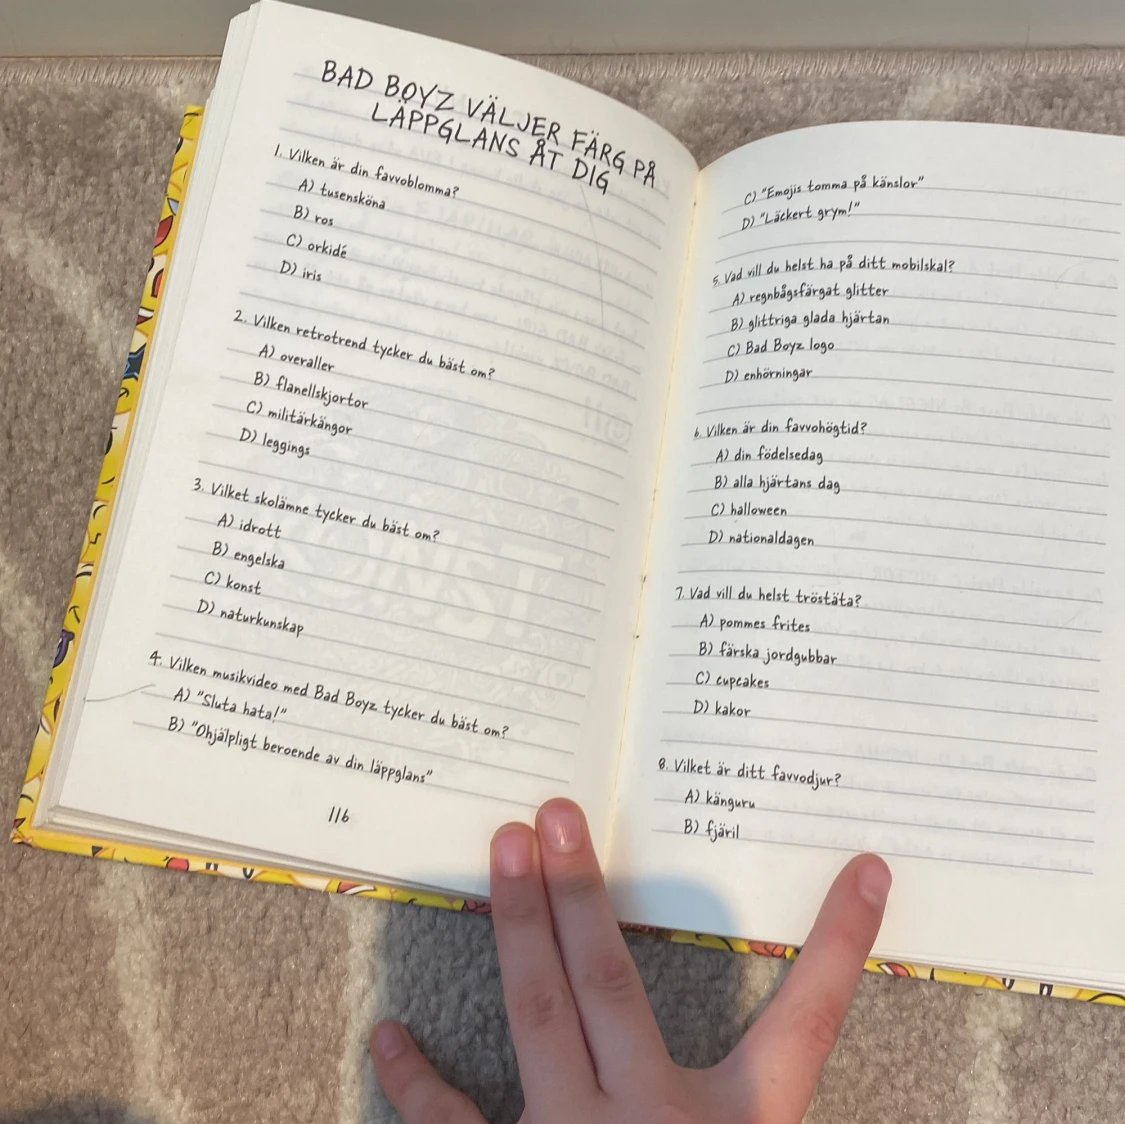 BAD BOYZ VÄLJER FÄRG PÅ
LÄPPGLANS ÅT DIG
1. Vilken är din favvoblomma?
A) tusensköna
B) ros
C) orkidé
D) iris
2. Vilken retrotrend tycker du bäst om?
A) overaller
B) flanellskjortor
C) militärkängor
D) leggings
3. Vilket skolämne tycker du bäst om?
A) idrott
B) engelska
C) konst
D) naturkunskap
4. Vilken musikvideo med Bad Boyz tycker du bäst om?
A) "Sluta hata!"
B) "Ohjälpligt beroende av din läppglans"
116
C) "Emojis tomma på känslor"
D) "Läckert grym!"
5. Vad vill du helst ha på ditt mobilskal?
A) regnbågsfärgat glitter
B) glittriga glada hjärtan
C) Bad Boyz logo
D) enhörningar
6. Vilken är din favvohögtid?
A) din födelsedag
B) alla hjärtans dag
C) halloween
D) nationaldagen
7. Vad vill du helst tröstäta?
A) pommes frites
B) färska jordgubbar
C) cupcakes
D) kakor
8. Vilket är ditt favvodjur?
A) känguru
B) fjäril